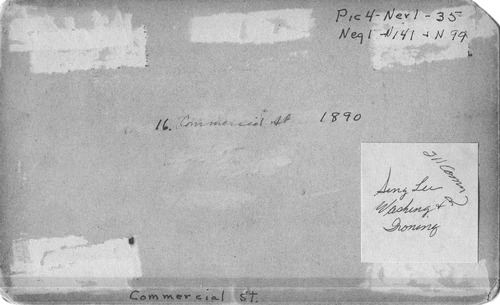 Pic 4 - Nev 1 - 35
Neg 1 - N141 + N 99
16. Commercial St 1890
211 Comm
Sing Lee
Washing &
Ironing
Commercial St.